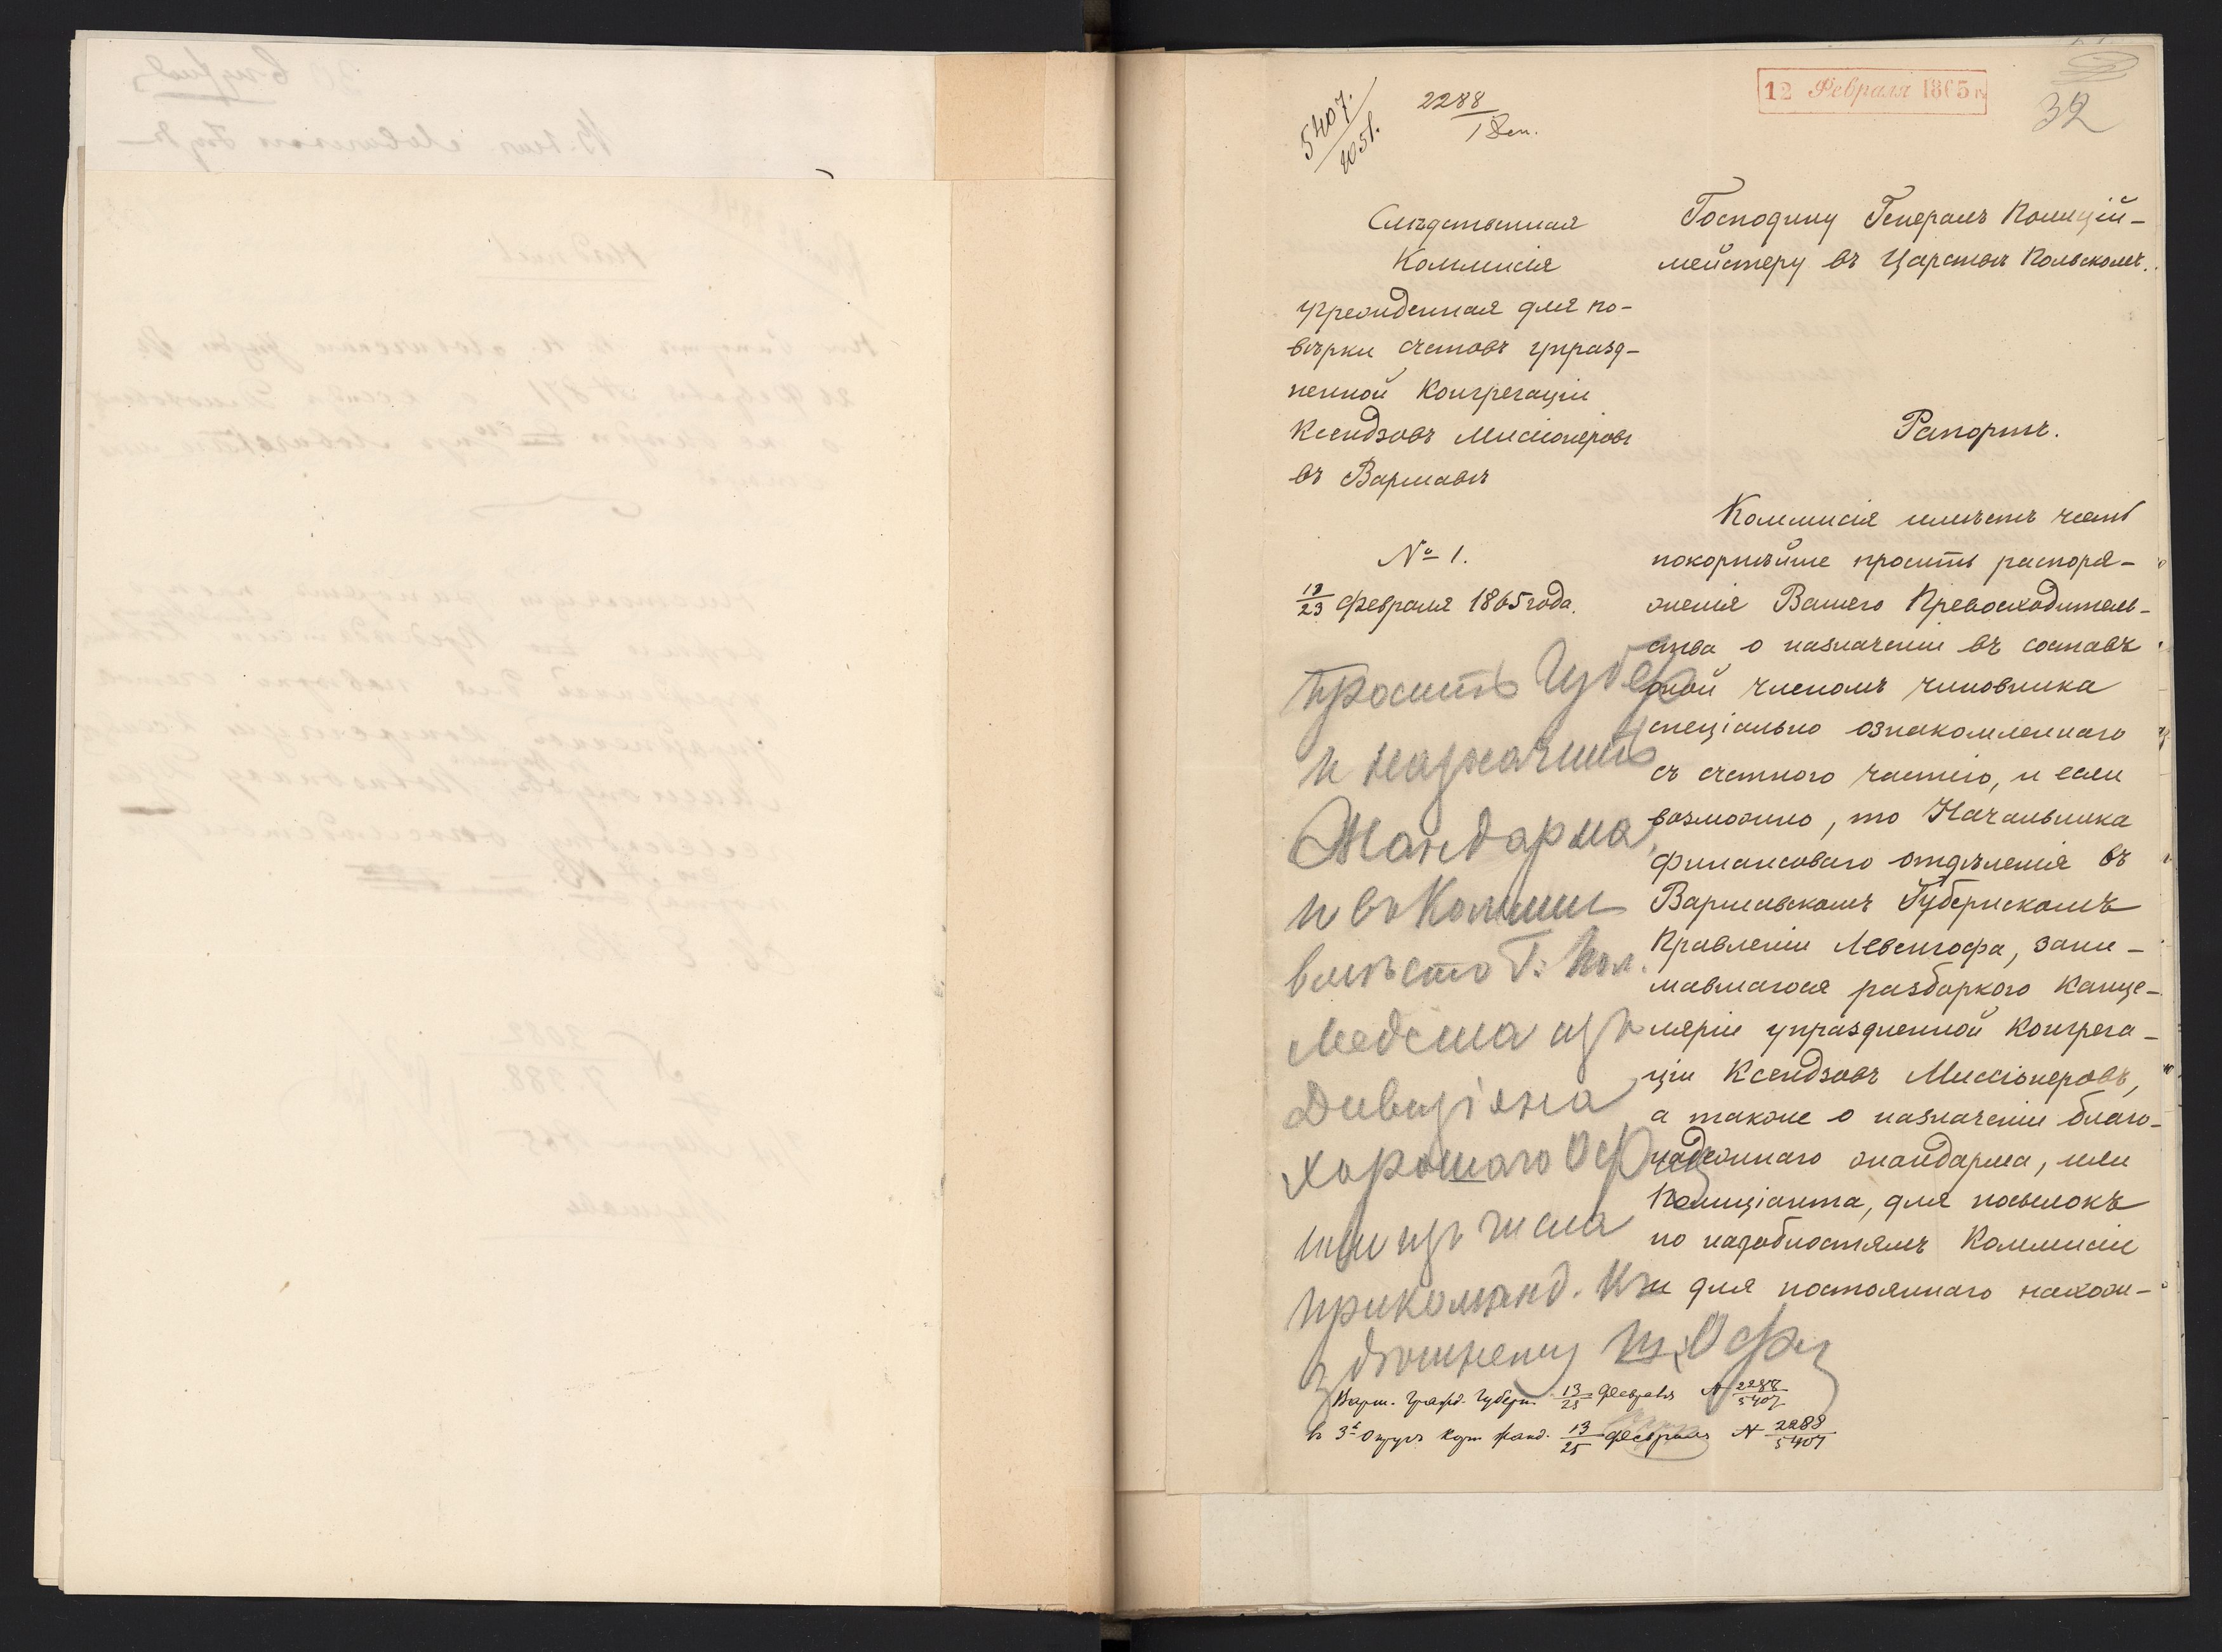 5407.
2051.
2288
1 Сен.
12 Февраля 1865 г.
32
Слѣдственная
Коммисія
учрежденная для по-
вѣрки счетовъ упразд-
ненной Конгрегаціи
Ксендзовъ Миссіонеровъ
въ Варшавѣ
№ 1.
Февраля 1865 года.
Господину Генералъ Полицій-
мейстеру въ Царствѣ Польскомъ.
Рапортъ.
Коммисія имѣетъ честь
покорнѣйше просить распоря-
женія Вашего Превосходитель-
ства о назначеніи въ составъ
оной членомъ чиновника
спеціально ознакомленнаго
съ счетною частію, и если
возможно, то Начальника
финансоваго отдѣленія въ
Варшавскомъ Губернскомъ
Правленіи Левенгофа, зани-
мавшагося разборкою Канце-
ляріи упраздненной Конгрега-
ціи Ксендзовъ Миссіонеровъ,
а также о назначеніи благо-
надежнаго жандарма, или
Полиціанта, для посылокъ
по надобностямъ Коммисіи
и для постояннаго нахож-
просить Губер
и назначить
Жандарма,
и въ Коммис
вмѣсто Г: Пол.
изъ
Дивизіона
хорошаго Оф
или изъ числа
прикоманд. къ
здѣшнему Шт. Офи
Варш. Гражд. Губерн. 13/25 Февраля № 2288/5407
въ 3й Округъ Кор. Жанд. 13/25 Февраля № 2288/5407